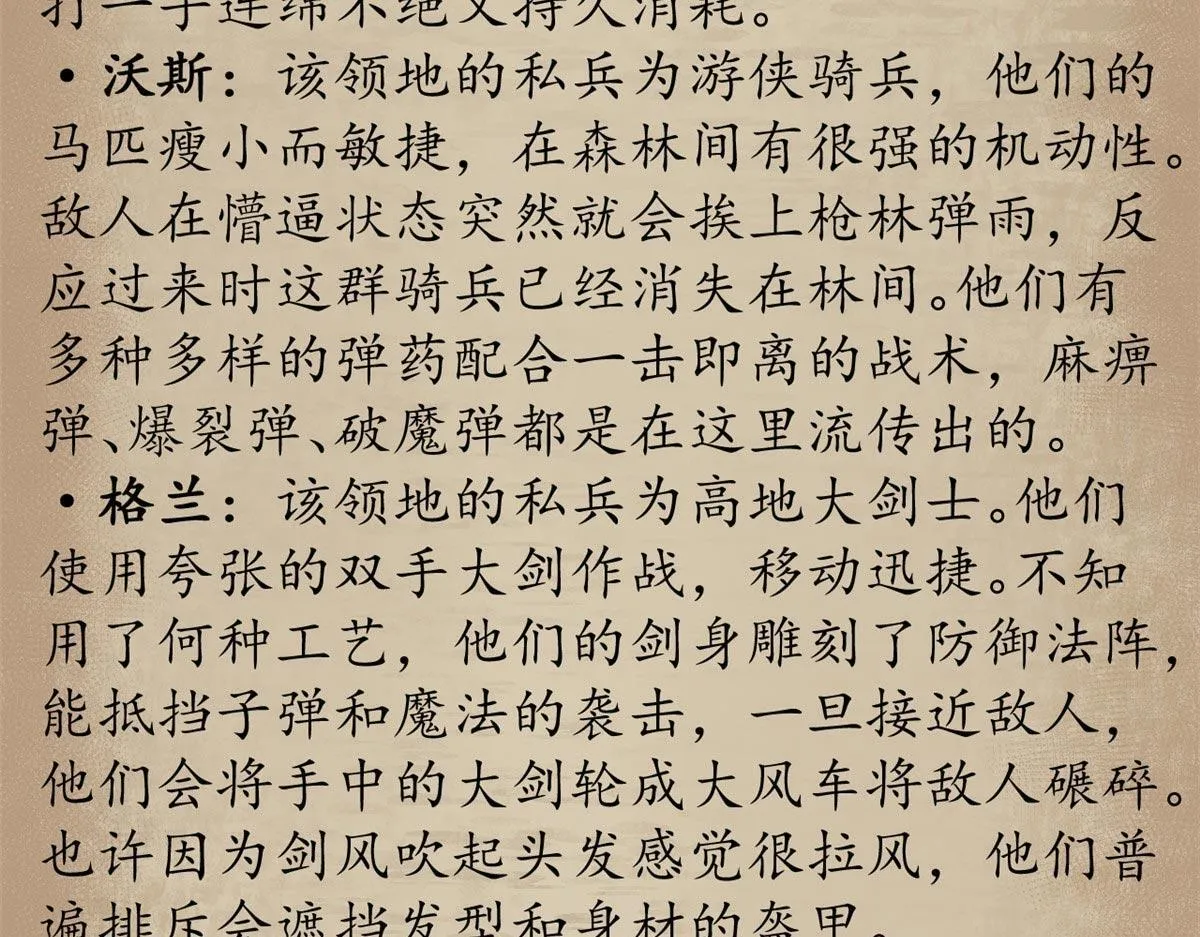 打一手连绵不绝又持久消耗。
• 沃斯：该领地的私兵为游侠骑兵，他们的
马匹瘦小而敏捷，在森林间有很强的机动性。
敌人在懵逼状态突然就会挨上枪林弹雨，反
应过来时这群骑兵已经消失在林间。他们有
多种多样的弹药配合一击即离的战术，麻痹
弹、爆裂弹、破魔弹都是在这里流传出的。
• 格兰：该领地的私兵为高地大剑士。他们
使用夸张的双手大剑作战，移动迅捷。不知
用了何种工艺，他们的剑身雕刻了防御法阵，
能抵挡子弹和魔法的袭击，一旦接近敌人，
他们会将手中的大剑轮成大风车将敌人碾碎。
也许因为剑风吹起头发感觉很拉风，他们普
遍排斥会遮挡发型和身材的盔甲。